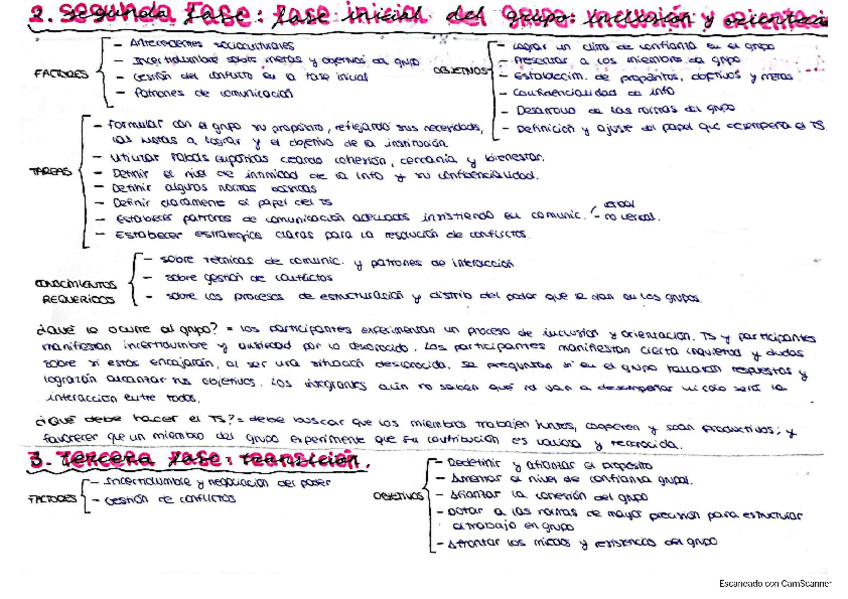 2. Segunda fase: fase inicial del grupo: inclusión y orientaci
FACTORES
- Antecedentes socioculturales
- Incertidumbre sobre metas y objetivos del grupo
- Gestión del conflicto en la fase inicial
- Patrones de comunicación
OBJETIVOS
- Lograr un clima de confianza en el grupo
- Presentar a los miembros del grupo
- Establecim. de propósitos, objetivos y metas
- Confidencialidad de info
- Desarrollo de las normas del grupo
- Definición y ajuste del papel que desempeña el TS
TAREAS
- Formular con el grupo su propósito, reflejando sus necesidades,
las metas a lograr y el objetivo de la institución
- Utilizar habilid. empáticas creando cohesión, cercanía y bienestar.
- Definir el nivel de intimidad de la info y su confidencialidad.
- Definir algunas normas básicas
- Definir claramente el papel del TS
- Establecer patrones de comunicación adecuados insistiendo en comunic. - verbal
- no verbal.
- Establecer estrategias claras para la resolución de conflictos.
CONOCIMIENTOS
REQUERIDOS
- sobre técnicas de comunic. y patrones de interacción
- sobre gestión de conflictos
- sobre los procesos de estructuración y distrib del poder que se dan en los grupos.
¿Qué le ocurre al grupo? = los participantes experimentan un proceso de inclusión y orientación. TS y participantes
manifiestan incertidumbre y ansiedad por lo desconocido. Los participantes manifiestan cierta inquietud y dudas
sobre si estos encajarán, al ser una situació desconocida. Se preguntan si en el grupo hallarán respuestas y
lograrán alcanzar sus objetivos. Los integrantes aún no saben qué rol van a desempeñar ni cómo será la
interacción entre todos.
¿Qué debe hacer el TS? = debe buscar que los miembros trabajen juntos, cooperen y sean productivos; y
favorecer que un miembro del grupo experimente que su contribución es valiosa y reconocida.
3. Tercera fase: transición.
FACTORES
- Incertidumbre y negociación del poder
- Gestión de conflictos
OBJETIVOS
- Redefinir y afianzar el propósito
- Aumentar el nivel de confianza grupal.
- Afianzar la cohesión del grupo
- Dotar a las normas de mayor precisión para estructurar
el trabajo en grupo
- Afrontar los miedos y resistencias del grupo
Escaneado con CamScanner